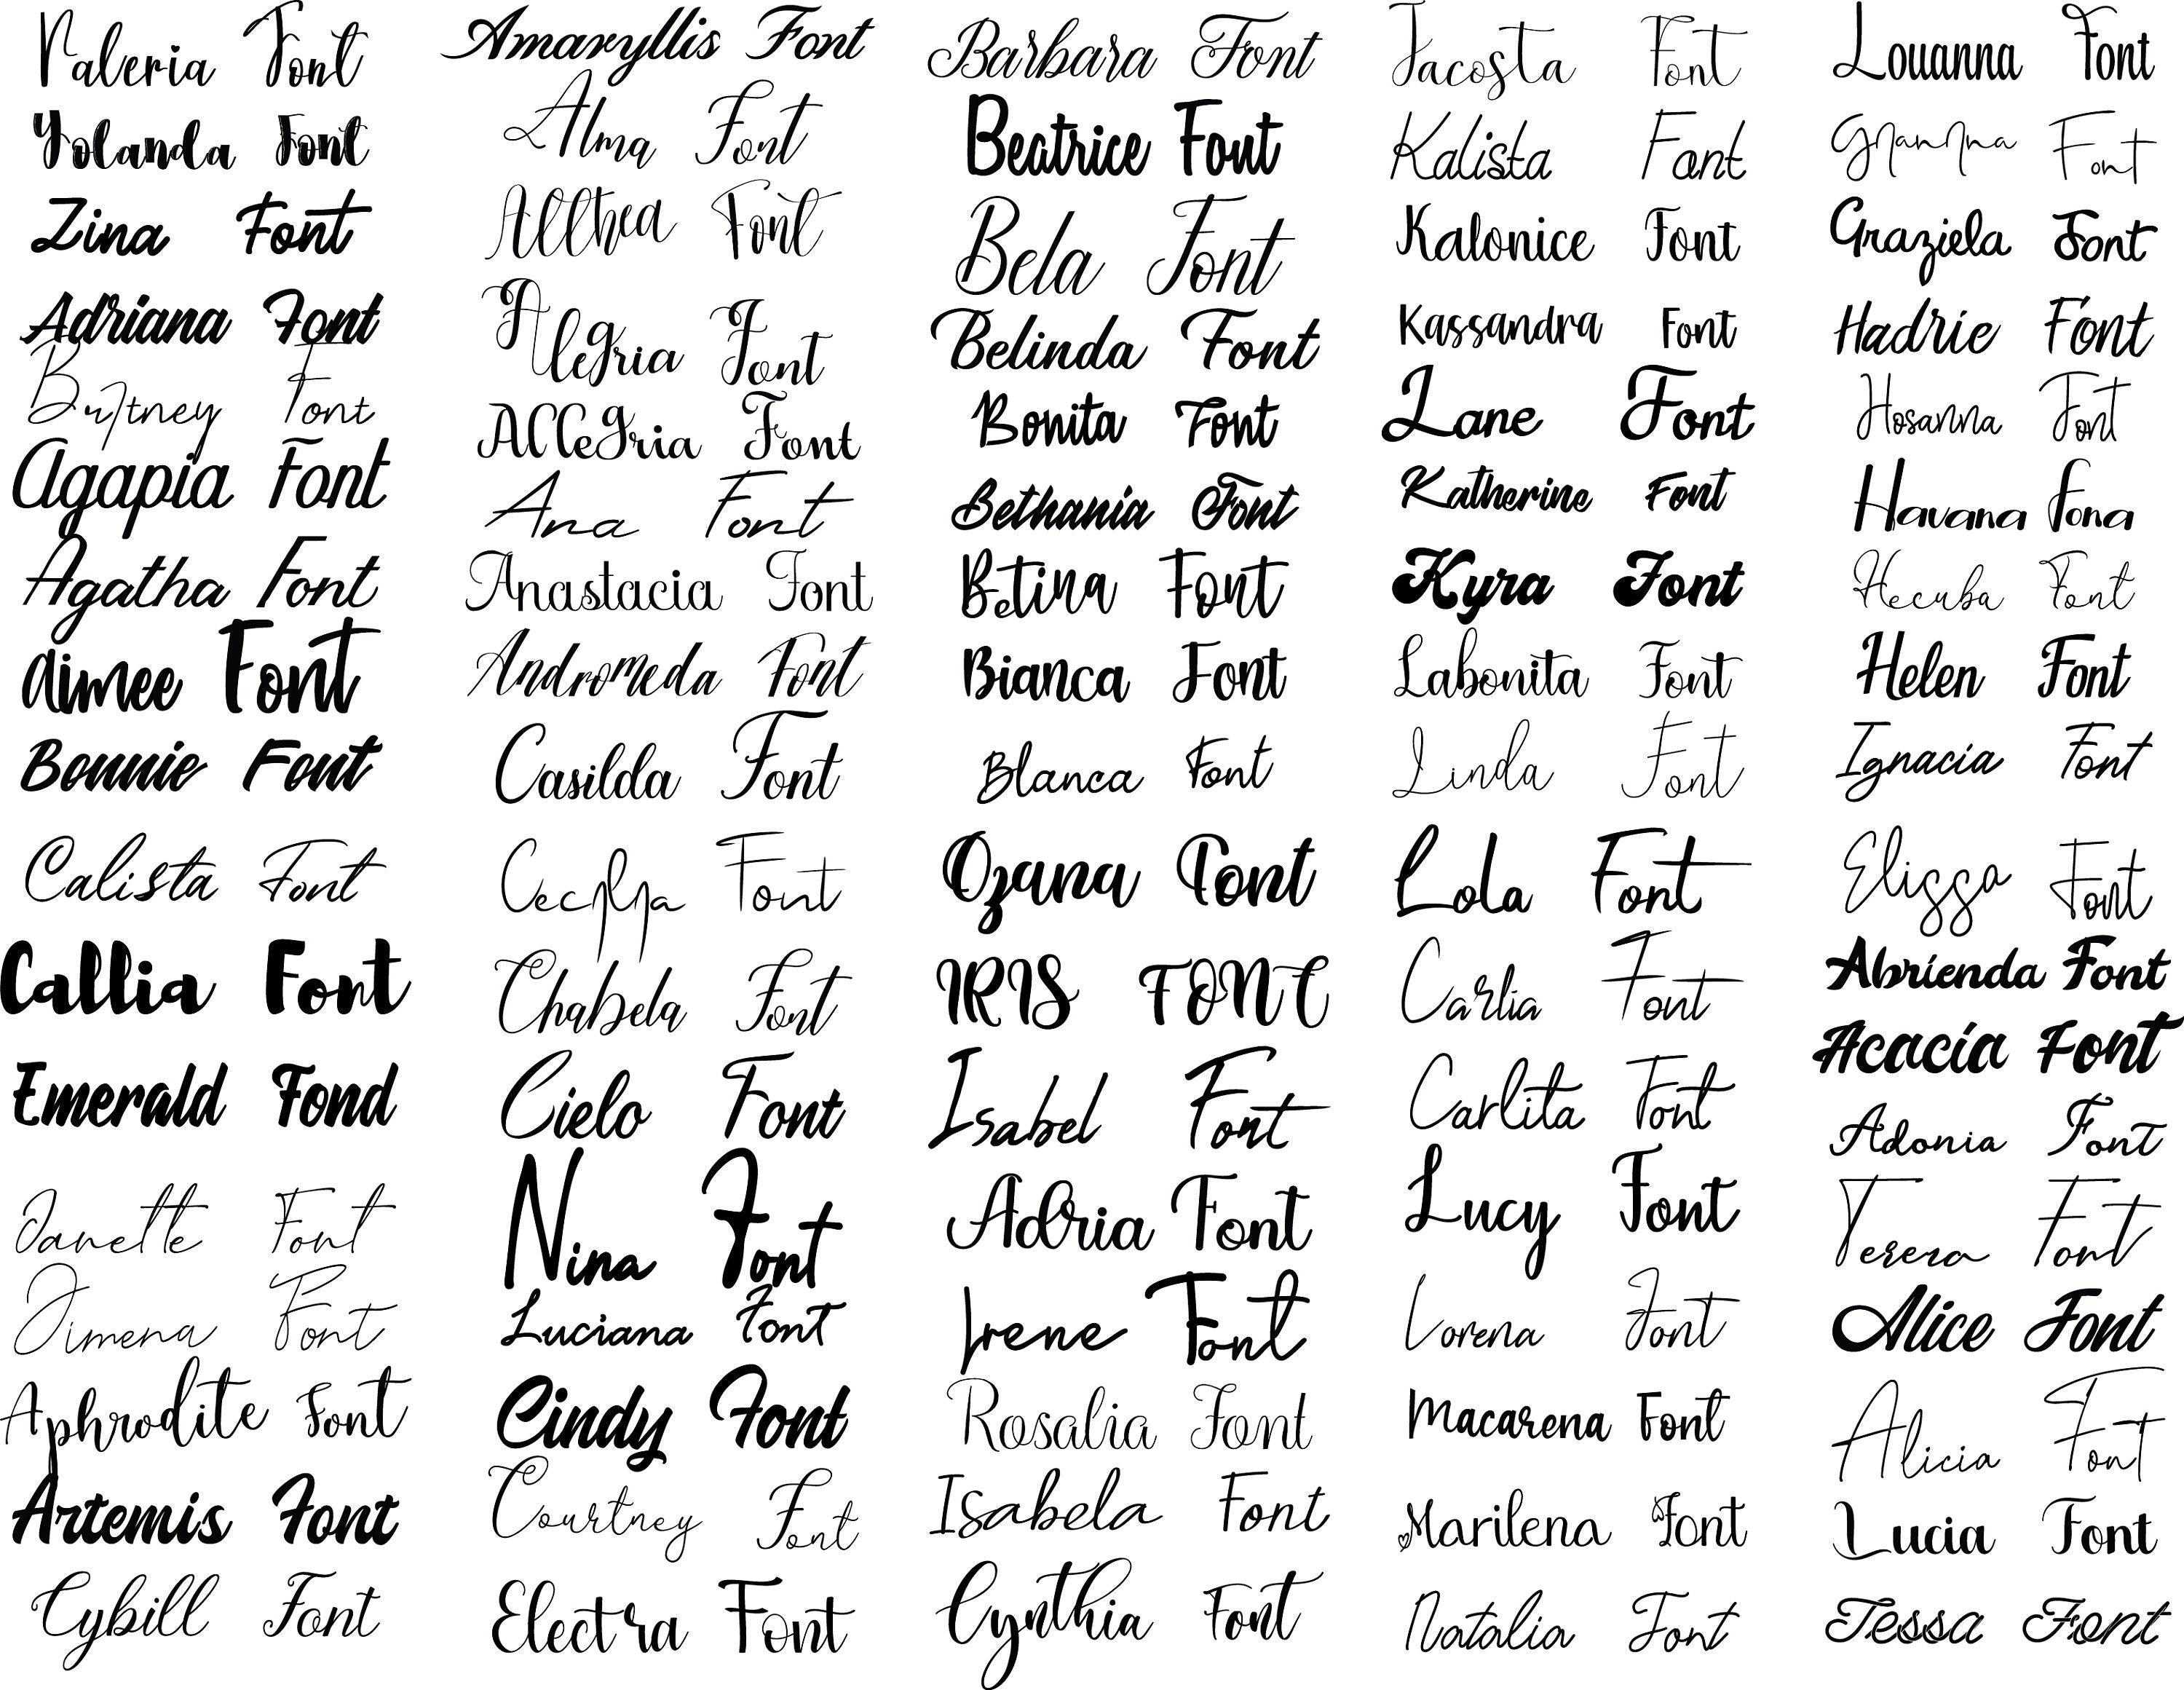 Valeria Font
Yolanda Font
Zina Font
Adriana Font
Brytney Font
Agapia Font
Agatha Font
Aimee Font
Bonnie Font
Calista Font
Callia Font
Emerald Fond
Janette Font
Jimena Font
Aphrodite Font
Artemis Font
Cybill Font
Amaryllis Font
Alma Font
Allthea Font
Alegria Font
Allegria Font
Ana Font
Anastacia Font
Andromeda Font
Casilda Font
Font
Chabela Font
Cielo Font
Nina Font
Luciana Font
Cindy Font
Courtney Font
Electra Font
Barbara Font
Beatrice Font
Bela Font
Belinda Font
Bonita Font
Bethania Font
Betina Font
Bianca Font
Blanca Font
Ozana Font
IRIS FONT
Isabel Font
Adria Font
Irene Font
Rosalia Font
Isabela Font
Cynthia Font
Jacosta Font
Kalista Font
Kalonice Font
Kassandra Font
Lane Font
Katherine Font
Kyra Font
Labonita Font
Linda Font
Lola Font
Carlia Font
Carlita Font
Lucy Font
Lorena Font
Macarena Font
Marilena Font
Natalia Font
Louanna Font
Font
Graziela Font
Hadrie Font
Hosanna Font
Havana Fona
Hecuba Font
Helen Font
Ignacia Font
Elissa Font
Abrienda Font
Acacia Font
Adonia Font
Tereza Font
Alice Font
Alicia Font
Lucia Font
Tessa Font